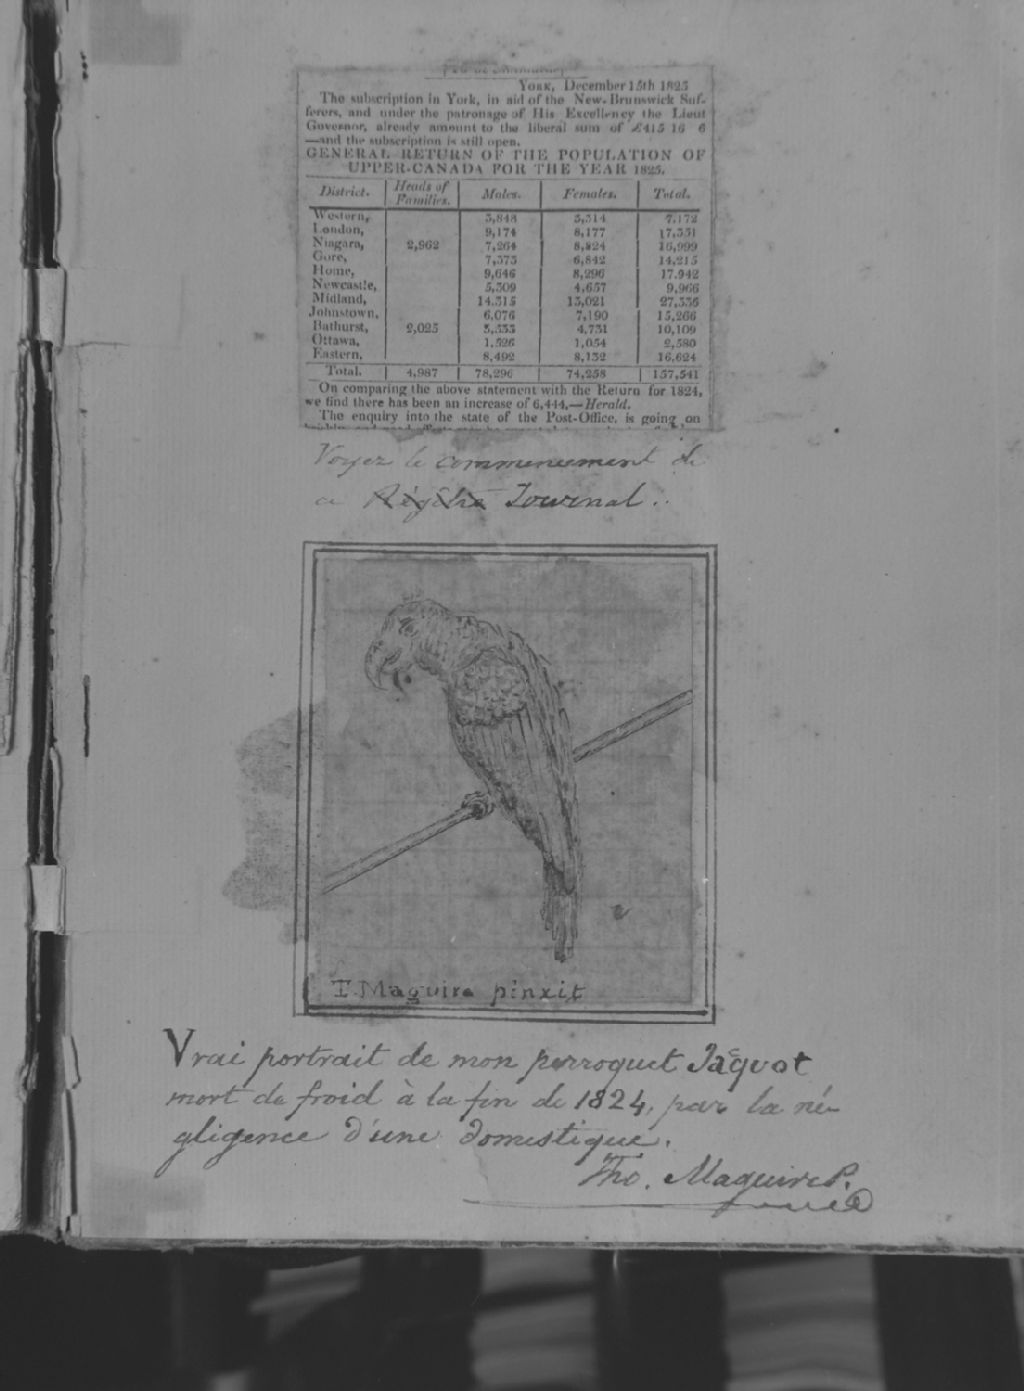 YORK, December 15th 1825
The subscription in York, in aid of the New-Brunswick Suf-
ferers, and under the patronage of His Excellency the Lieut
Governor, already amount to the liberal sum of £415 16 6
—and the subscription is still open.
GENERAL RETURN OF THE POPULATION OF
UPPER-CANADA FOR THE YEAR 1825.
District. Heads of Families. Males. Females. Total.
Western, 3,848 3,314 7,172
London, 9,174 8,177 17,351
Niagara, 2,962 7,264 8,824 16,999
Gore, 7,373 6,842 14,215
Home, 9,646 8,296 17.942
Newcastle, 5,309 4,657 9,966
Midland, 14.315 13,021 27,336
Johnstown, 6,076 7,190 15,266
Bathurst, 2,025 3,353 4,731 10,109
Ottawa, 1,526 1,054 2,580
Eastern, 8,492 8,132 16,624
Total. 4,987 78,296 74,258 157,541
On comparing the above statement with the Return for 1824,
we find there has been an increase of 6,444,—Herald.
The enquiry into the state of the Post-Office, is going on
Voyez le commencement de
ce Régître Journal..
T. Maguire pinxit
Vrai portrait de mon perroquet Jacquot
mort de froid à la fin de 1824, par la né-
gligence d'une domestique.
Tho. Maguire P.